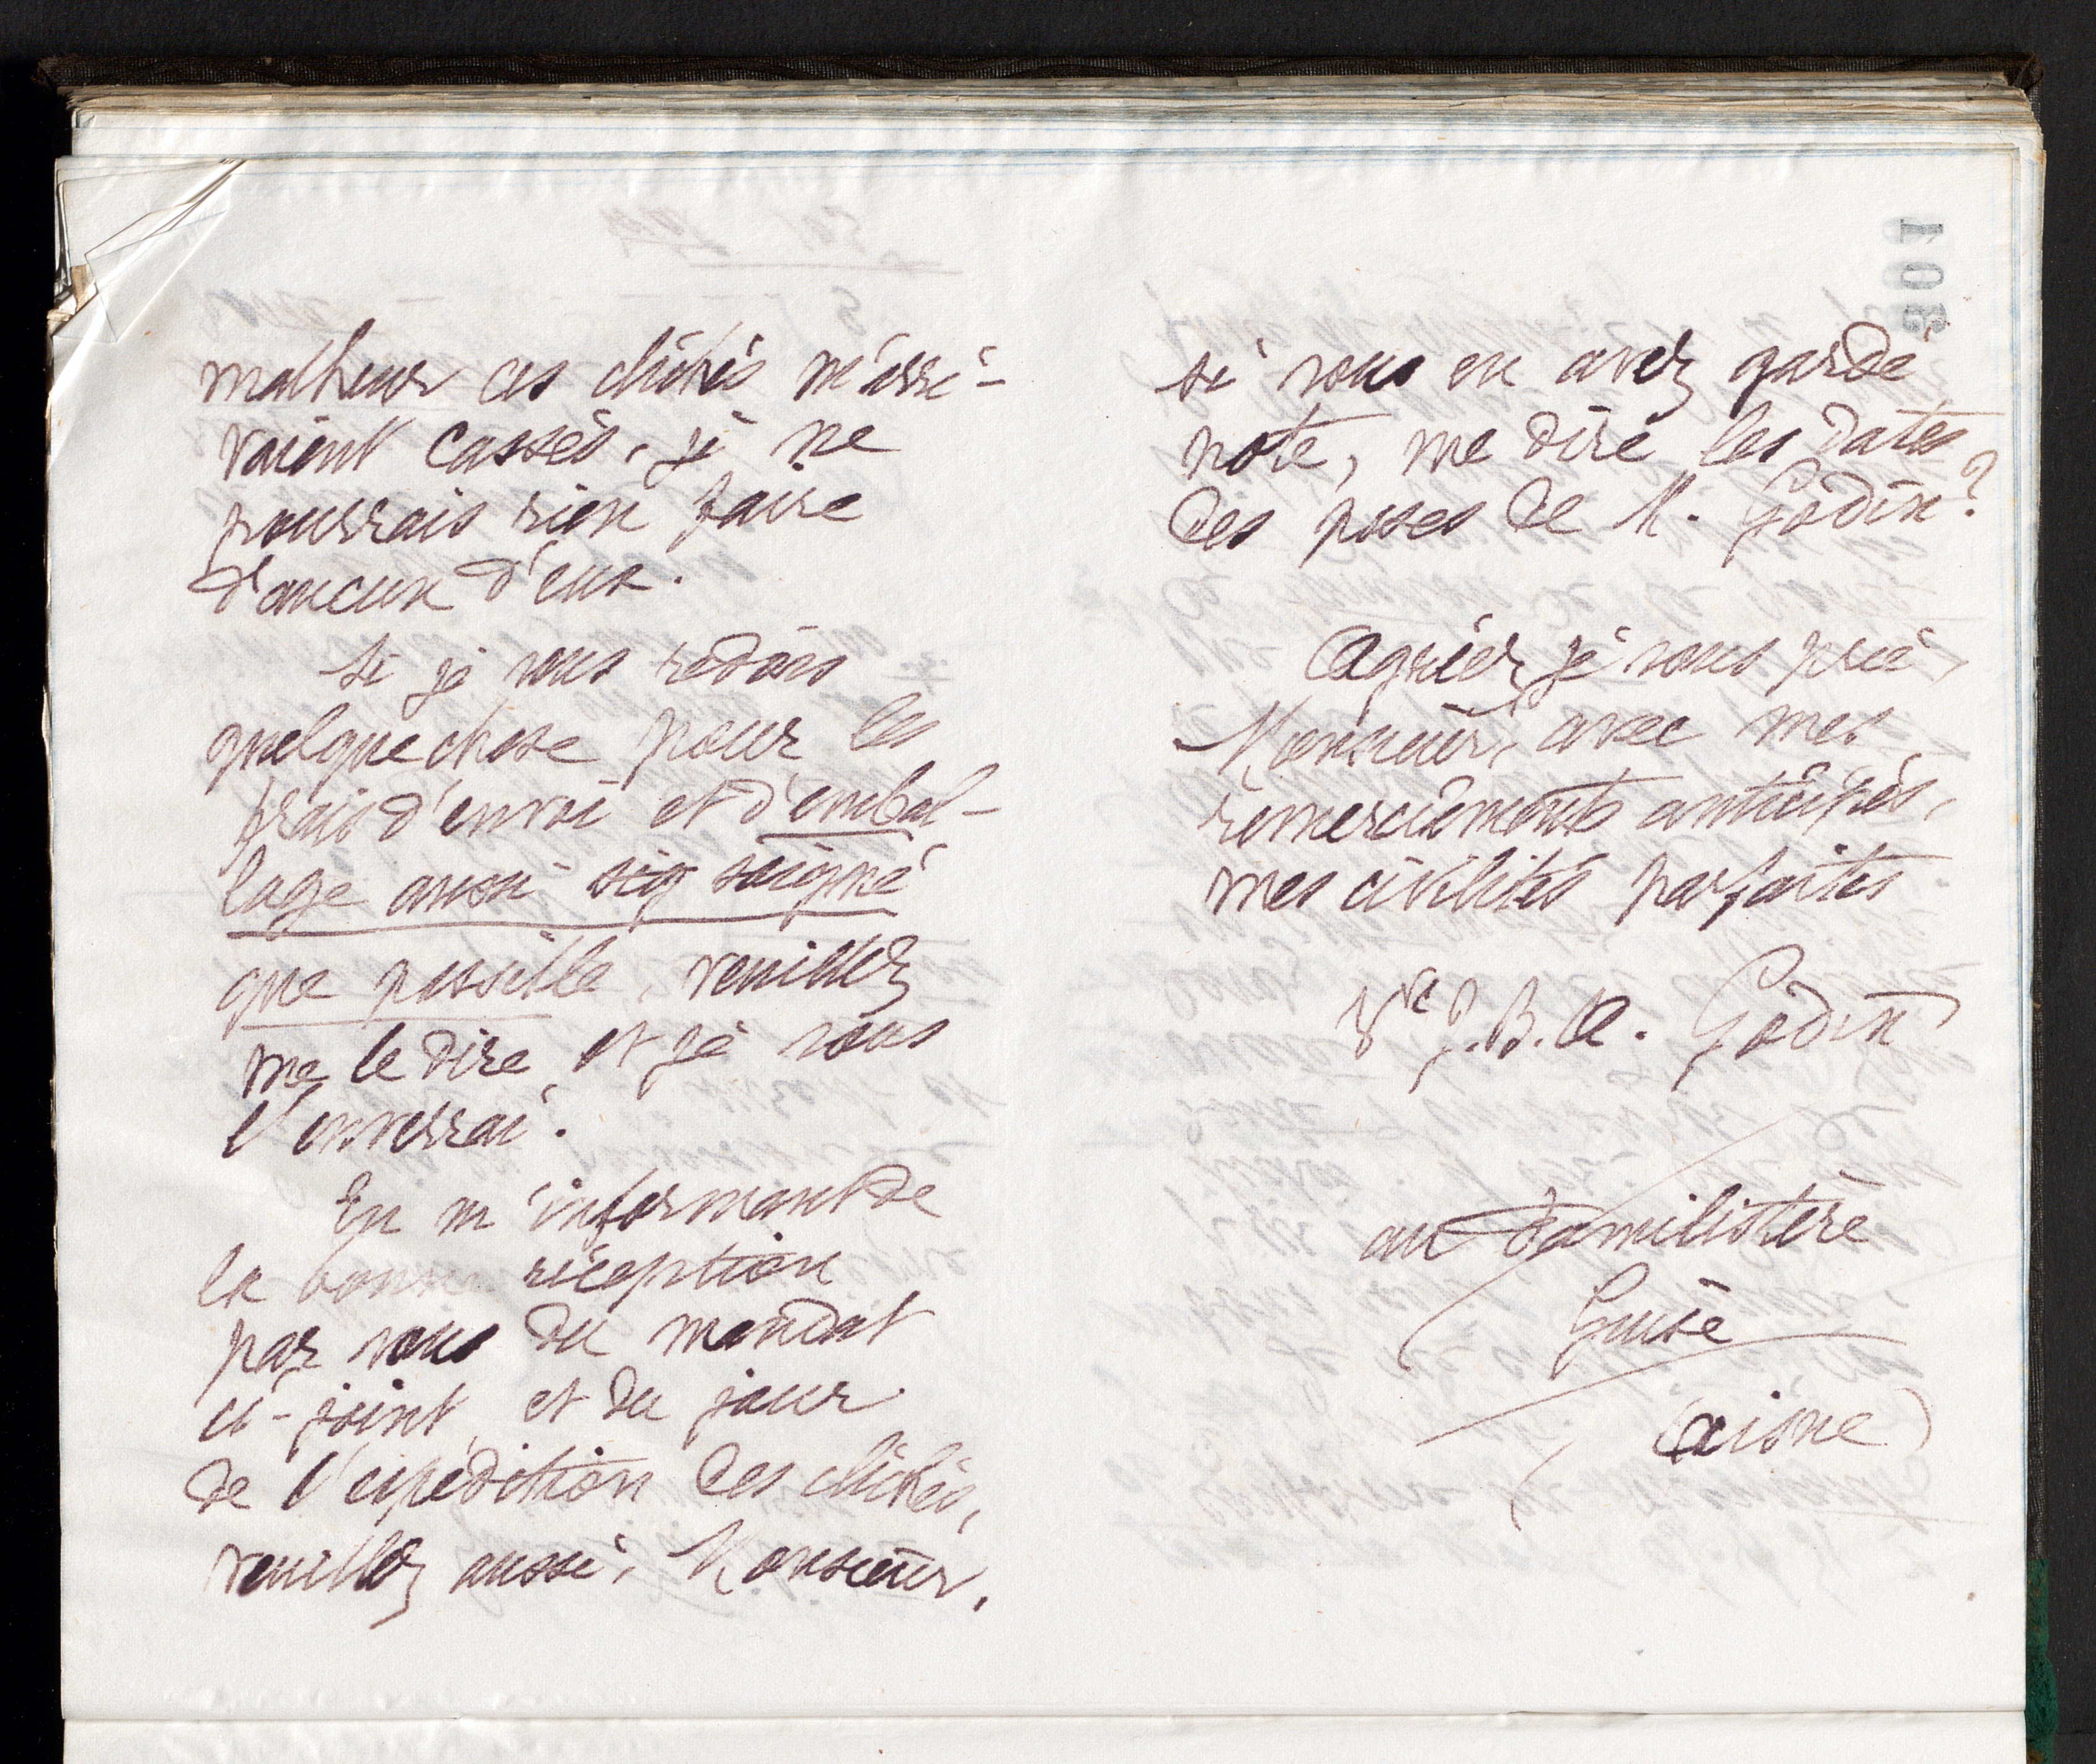 malheur ces clichés m'arri-
vaient cassés, je ne
pourrais rien faire
d'aucun d'eux.
Si je vous redois
quelque chose pour les
frais d'envoi et d'embal-
lage aussi sig soigné
que possible, veuillez
me le dire et je vous
l'enverrai.
En m'informant de
la bonne réception
par vous du mandat
ci-joint et du jour
de l'expédition des clichés,
veuillez aussi, Monsieur,
301
si vous en avez gardé
note, me dire les dates
des poses de M. Godin?
Agréez je vous prie,
Monsieur, avec mes
remerciements anticipés,
mes civilités parfaites
Vve J.B.A. Godin
au Familistère
Guise
(Aisne)